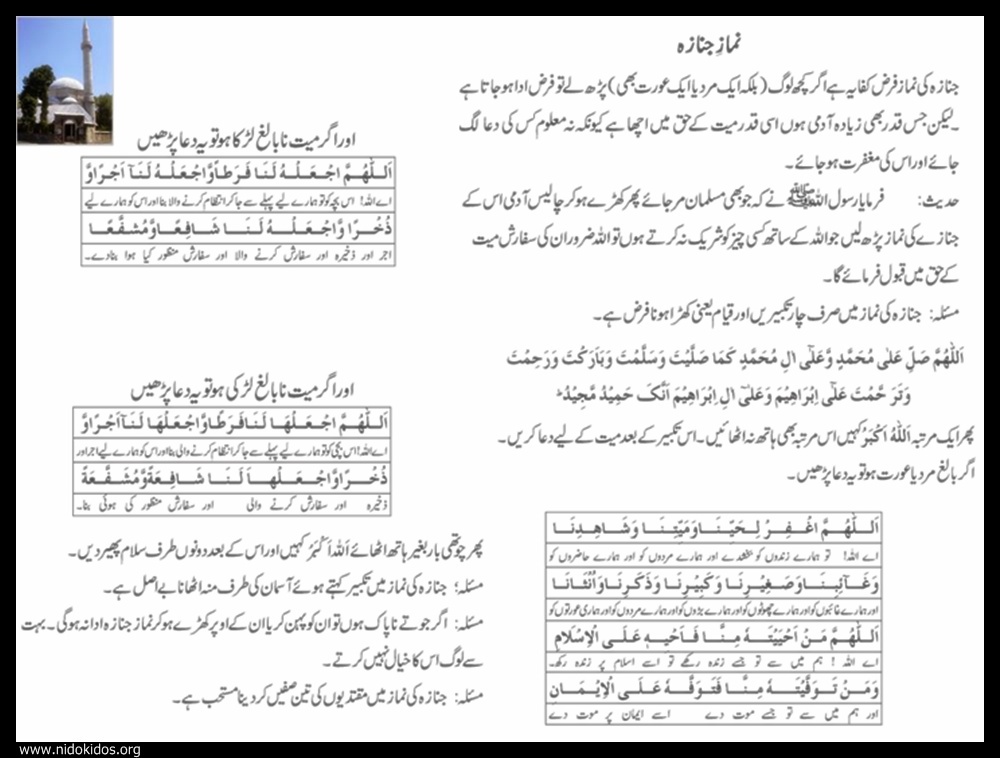 نمازِ جنازہ
جنازہ کی نماز فرض کفایہ ہے اگر کچھ لوگ (بلکہ ایک مرد یا ایک عورت بھی) پڑھ لے تو فرض ادا ہو جاتا ہے
۔لیکن جس قدر بھی زیادہ آدمی ہوں اسی قدر میت کے حق میں اچھا ہے کیونکہ نہ معلوم کس کی دعا لگ
جائے اور اس کی مغفرت ہو جائے۔
حدیث: فرمایا رسول اللہ ﷺ نے کہ جو بھی مسلمان مر جائے پھر کھڑے ہو کر چالیس آدمی اس کے
جنازے کی نماز پڑھ لیں جو اللہ کے ساتھ کسی چیز کو شریک نہ کرتے ہوں تو اللہ ضرور ان کی سفارش میت
کے حق میں قبول فرمائے گا۔
مسئلہ: جنازہ کی نماز میں صرف چار تکبیریں اور قیام یعنی کھڑا ہونا فرض ہے۔
اَللّٰهُمَّ صَلِّ عَلٰی مُحَمَّدٍ وَّعَلٰٓی اٰلِ مُحَمَّدٍ کَمَا صَلَّیْتَ وَسَلَّمْتَ وَبَارَکْتَ وَرَحِمْتَ
وَتَرَحَّمْتَ عَلٰٓی اِبْرَاهِیْمَ وَعَلٰٓی اٰلِ اِبْرَاهِیْمَ اِنَّکَ حَمِیْدٌ مَّجِیْدٌ ط
پھر ایک مرتبہ اَللّٰهُ اَکْبَرُ کہیں اس مرتبہ بھی ہاتھ نہ اٹھائیں۔ اس تکبیر کے بعد میت کے لیے دعا کریں۔
اگر بالغ مرد یا عورت ہو تو یہ دعا پڑھیں۔
اَللّٰهُمَّ اغْفِرْ لِحَیِّنَا وَمَیِّتِنَا وَشَاهِدِنَا
اے اللہ! تو ہمارے زندوں کو بخشدے اور ہمارے مردوں کو اور ہمارے حاضروں کو
وَغَآئِبِنَا وَصَغِیْرِنَا وَکَبِیْرِنَا وَذَکَرِنَا وَاُنْثَانَا
اور ہمارے غائبوں کو اور ہمارے چھوٹوں کو اور ہمارے بڑوں کو اور ہمارے مردوں کو اور ہماری عورتوں کو
اَللّٰهُمَّ مَنْ اَحْیَیْتَهٗ مِنَّا فَاَحْیِهٖ عَلَی الْاِسْلَامِ
اے اللہ ! ہم میں سے تو جسے زندہ رکھے تو اسے اسلام پر زندہ رکھ۔
وَمَنْ تَوَفَّیْتَهٗ مِنَّا فَتَوَفَّهٗ عَلَی الْاِیْمَانِ
اور ہم میں سے تو جسے موت دے اسے ایمان پر موت دے
اور اگر میت نابالغ لڑکا ہو تو یہ دعا پڑھیں
اَللّٰهُمَّ اجْعَلْهُ لَنَا فَرَطًا وَّاجْعَلْهُ لَنَآ اَجْرًا وَّ
اے اللہ! اس بچہ کو تو ہمارے لیے پہلے سے جا کر انتظام کرنے والا بنا اور اس کو ہمارے لیے
ذُخْرًا وَّاجْعَلْهُ لَنَا شَافِعًا وَّمُشَفَّعًا
اجر اور ذخیرہ اور سفارش کرنے والا اور سفارش منظور کیا ہوا بنا دے۔
اور اگر میت نابالغ لڑکی ہو تو یہ دعا پڑھیں
اَللّٰهُمَّ اجْعَلْهَا لَنَا فَرَطًا وَّاجْعَلْهَا لَنَآ اَجْرًا وَّ
اے اللہ! اس بچی کو تو ہمارے لیے پہلے سے جا کر انتظام کرنے والی بنا اور اس کو ہمارے لیے اجر اور
ذُخْرًا وَّاجْعَلْهَا لَنَا شَافِعَةً وَّمُشَفَّعَةً
ذخیرہ اور سفارش کرنے والی اور سفارش منظور کی ہوئی بنا۔
پھر چوتھی بار بغیر ہاتھ اٹھائے اَللّٰهُ اَکْبَرُ کہیں اور اس کے بعد دونوں طرف سلام پھیر دیں۔
مسئلہ: جنازہ کی نماز میں تکبیر کہتے ہوئے آسمان کی طرف منہ اٹھانا بے اصل ہے۔
مسئلہ: اگر جوتے ناپاک ہوں تو ان کو پہن کر یا ان کے اوپر کھڑے ہو کر نماز جنازہ ادا نہ ہوگی۔ بہت
سے لوگ اس کا خیال نہیں کرتے۔
مسئلہ: جنازہ کی نماز میں مقتدیوں کی تین صفیں کر دینا مستحب ہے۔
www.nidokidos.org